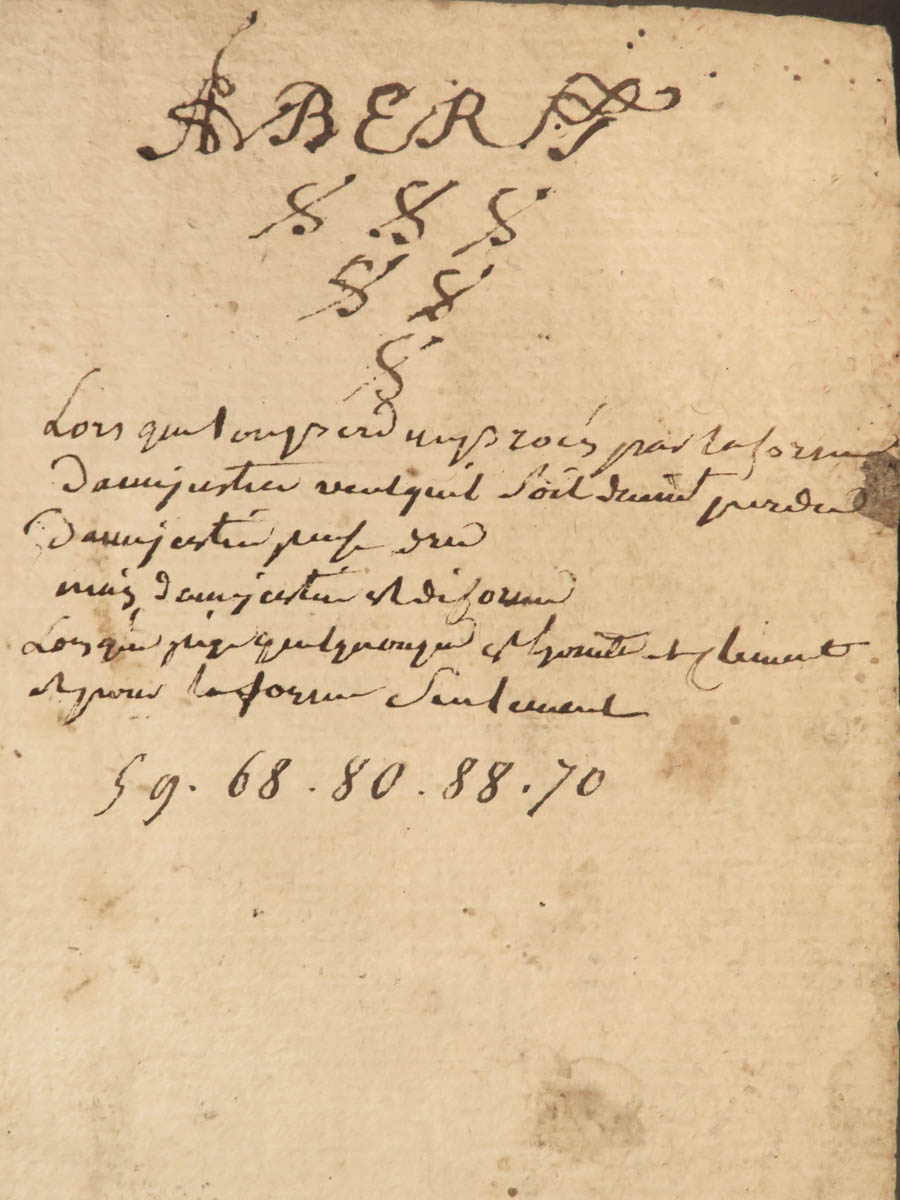 ABERT
Lors quel on perd un procés par la forme
Dame justice veut quil soit dument perdu
Dame justice peuse
mais dame justice est di forme
Lors que juge quelquonque est honete et clement
est pour la forme Seulement
59. 68. 80. 88. 70